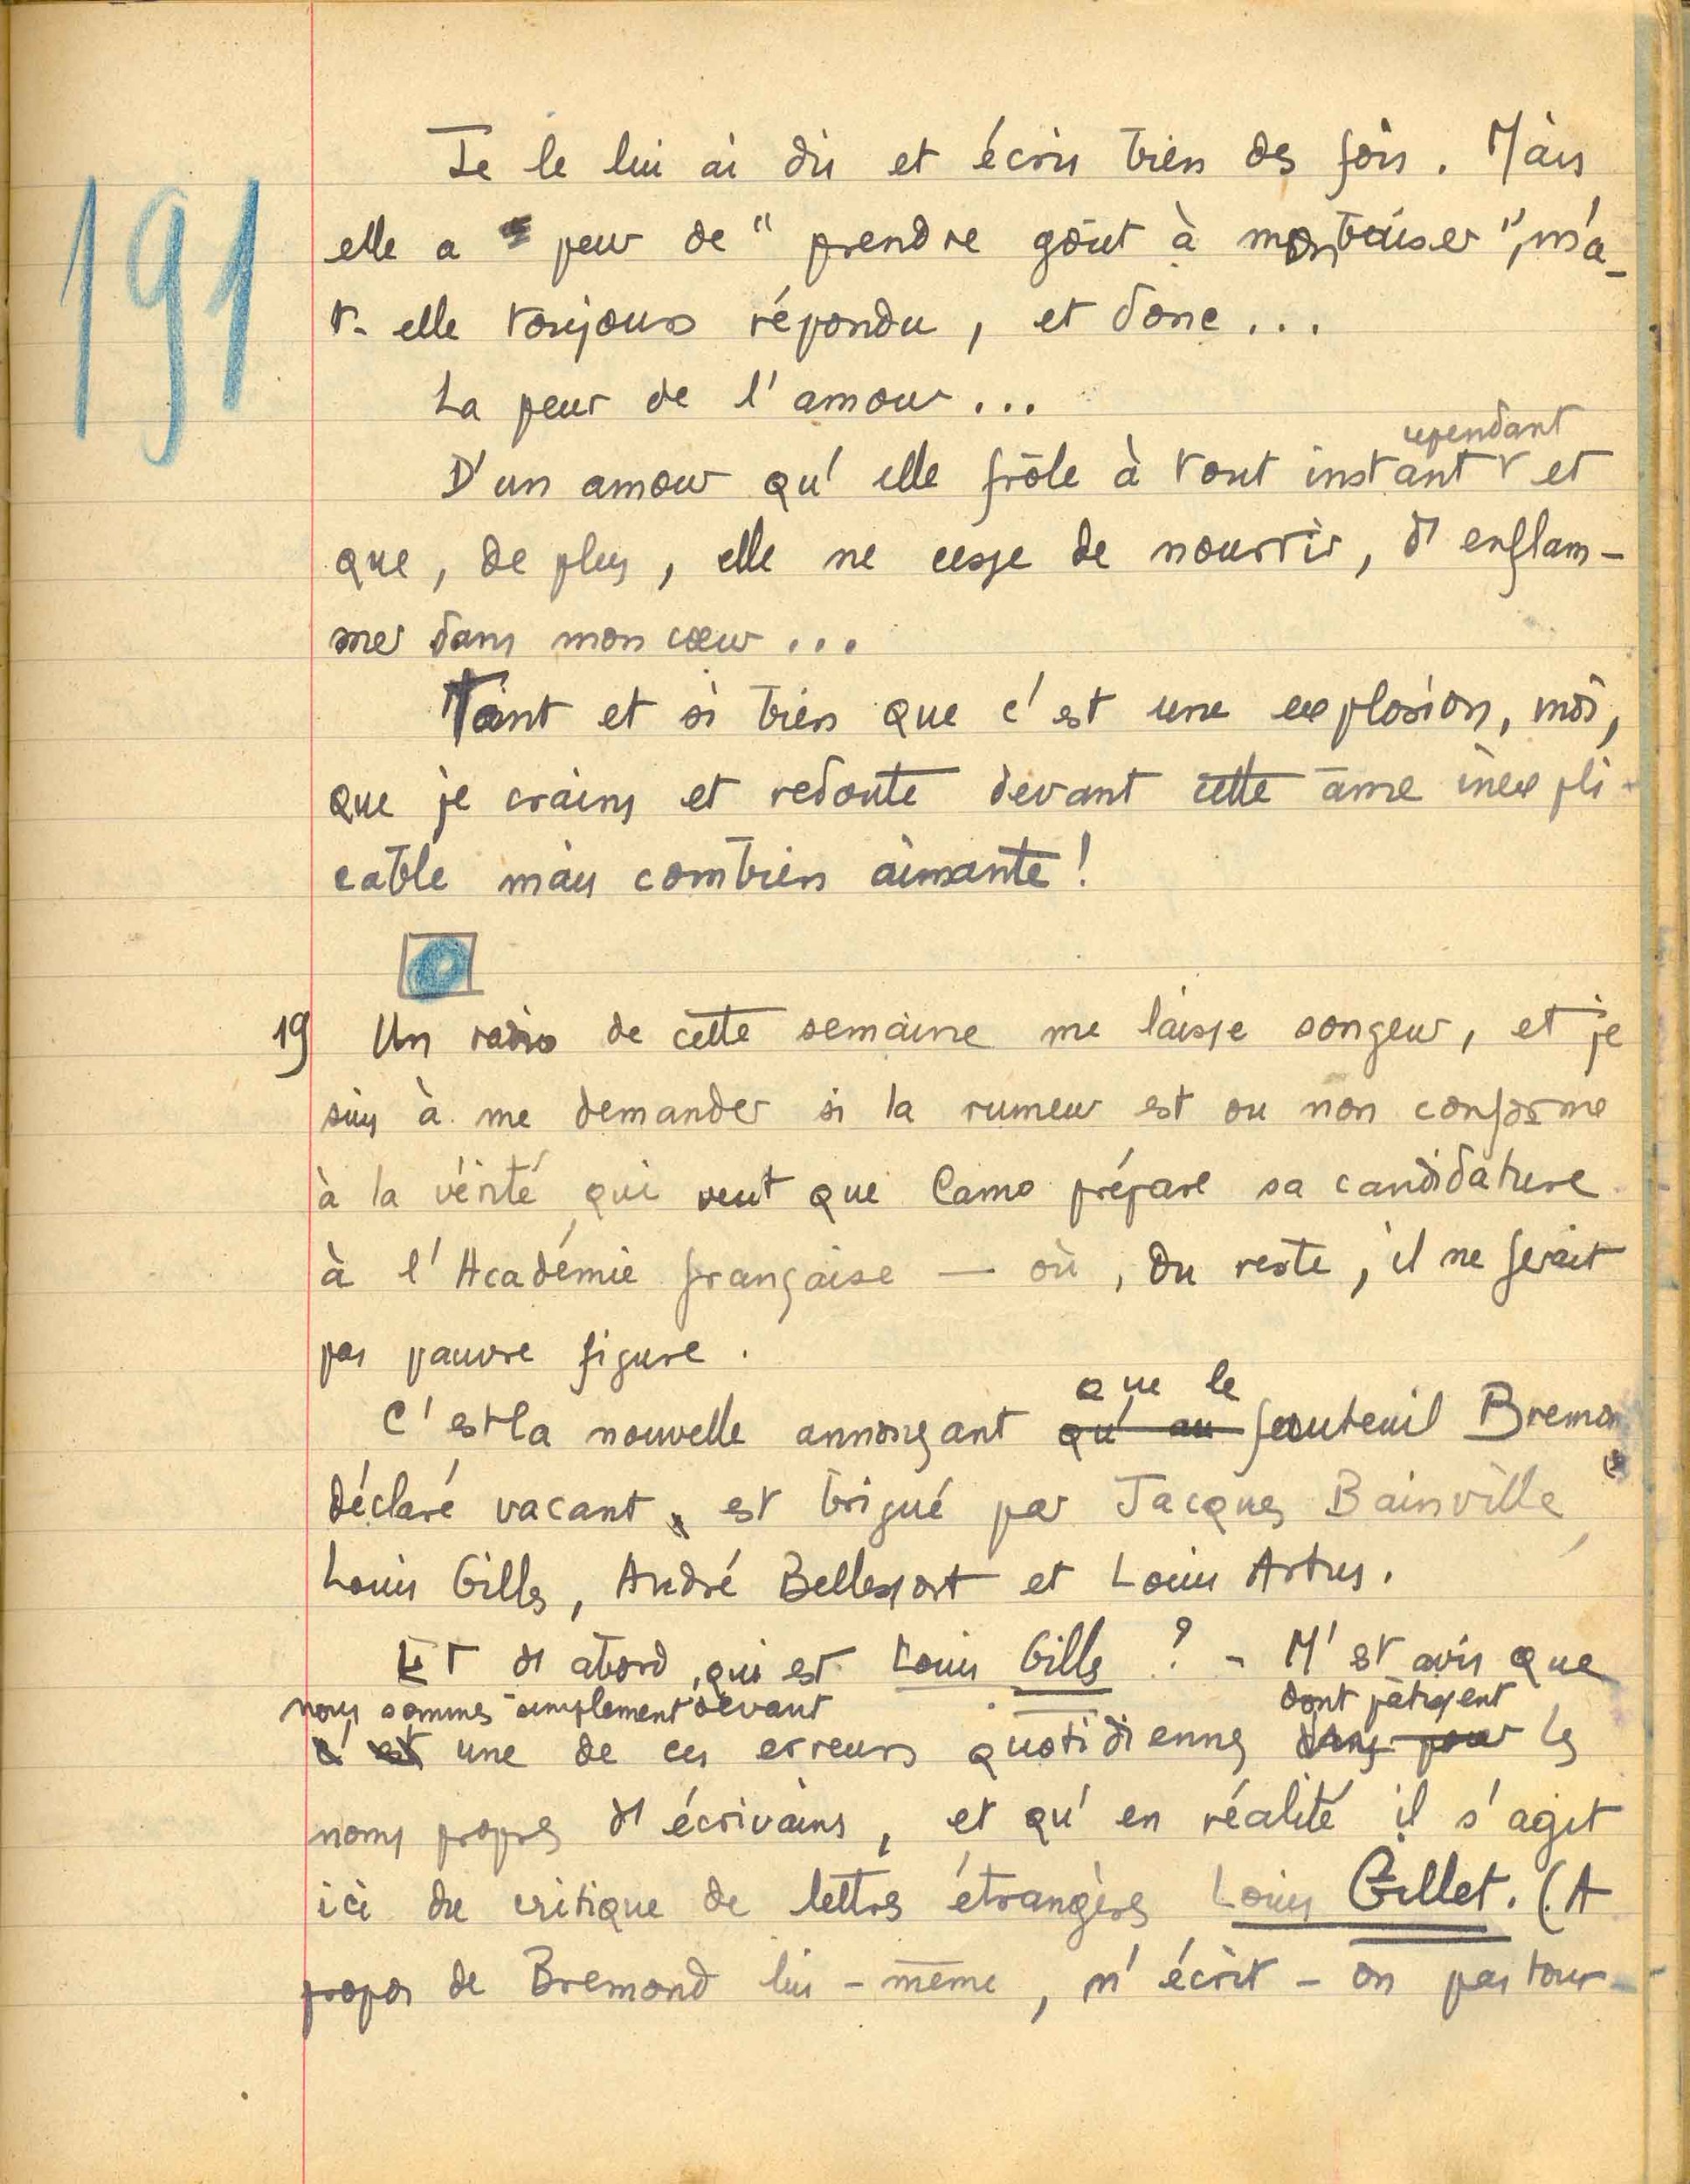 191
Je le lui ai dis et écris bien des fois. Mais
elle a peur de " prendre goût à mon baiser ", m'a-
t-elle toujours répondu, et donc...
La peur de l'amour...
cependant
D'un amour qu'elle frôle à tout instant et
que, de plus, elle ne cesse de nourrir, d'enflam-
mer dans mon cœur...
Tant et si bien que c'est une explosion, moi,
que je crains et redoute devant cette âme inexpli-
cable mais combien aimante!
19 Un radio de cette semaine me laisse songeur, et je
suis à me demander si la rumeur est ou non conforme
à la vérité qui veut que Camo prépare sa candidature
à l'Académie française — où, du reste, il ne ferait
pas pauvre figure.
que le
C'est la nouvelle annonçant qu'au fauteuil Bremond
déclaré vacant, est brigué par Jacques Bainville,
Louis Gilles, André Bellesort et Louis Artus.
Et d'abord, qui est Louis Gilles ? - M'est avis que
nous sommes simplement devant dont pâtissent
c'est une de ces erreurs quotidiennes dans pour les
noms propres d'écrivains, et qu'en réalité il s'agit
ici du critique de lettres étrangères Louis Gillet. (A
propos de Bremond lui-même, n'écrit-on pas tour-